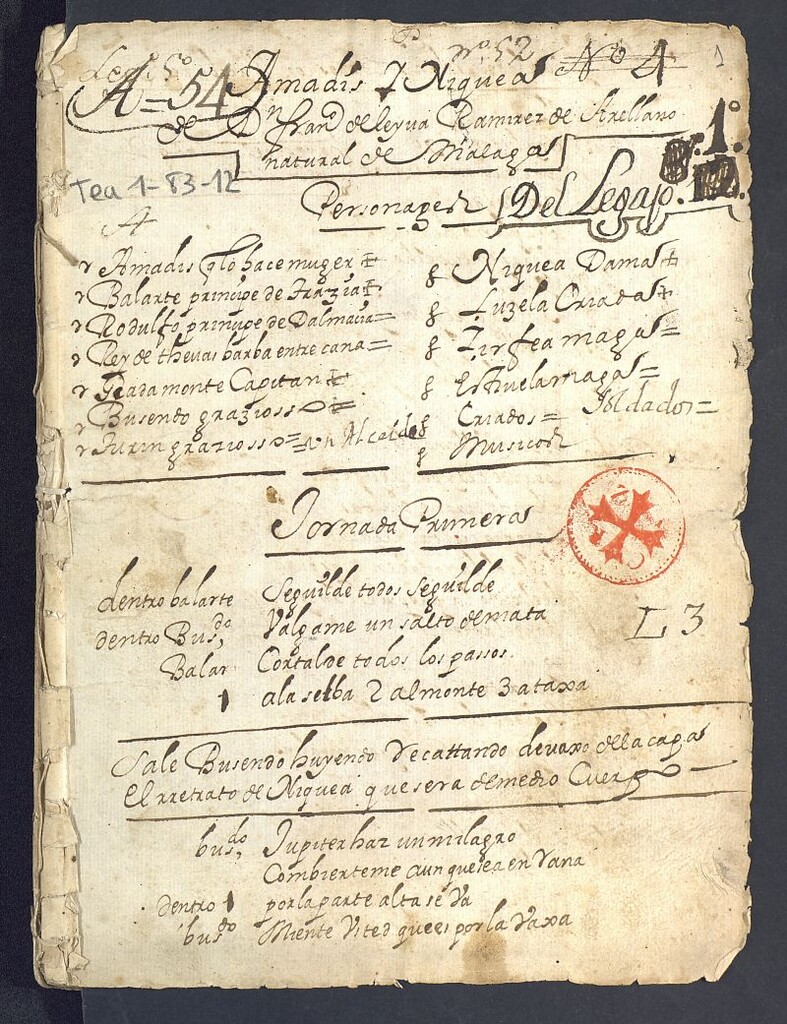 Leg. 5º nº 52 Nº 4 1
A=54 Amadis y Niquea
de Dn franco de leyua Ramirez de Arellano
natural de Malaga
Tea 1-83-12
Personages Del Legajo. 1º
Amadis q lo hace muger
Niquea Dama
Balarte principe de Trazia
Luzela Criada
Rodulfo principe de Dalmacia=
Zirfea maga=
Rey de thevas barba entre cana=
Esthuela maga=
Gradamonte Capitan
Criados= Soldados=
Busendo graziosso=
Musicos
Turin graziosso= Un Alcalde
Jornada Primera
dentro balarte Seguilde todos seguilde
dentro Busdo, Valgame un salto de mata
L 3
Balar Cortalde todos los passos.
1 a la selba 2 al monte 3 ataxa
Sale Busendo huyendo Recattando devaxo de la capa
el rretrato de Niquea que sera de medio Cuerpo
busdo, Jupiter haz un milagro
Combierteme aunque sea en Rana
dentro 1 por la parte alta se va
busdo Miente Vsted que es por la Vaxa